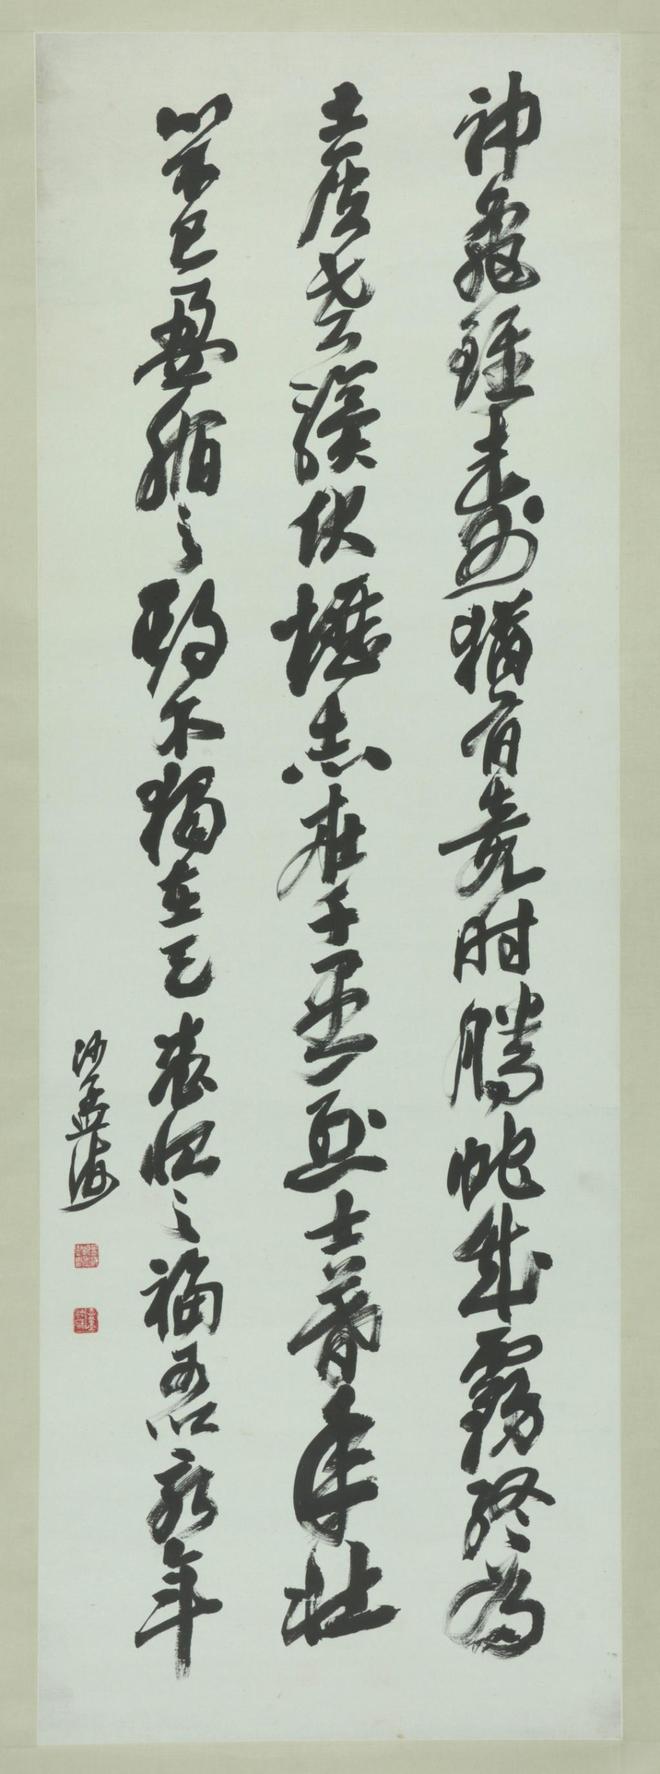 神龜雖壽猶有竟时騰蛇乘霧終為
土灰老驥伏櫪志在千里烈士暮年壯
心不已盈縮之期不獨在天養怡之福可以永年
沙孟海